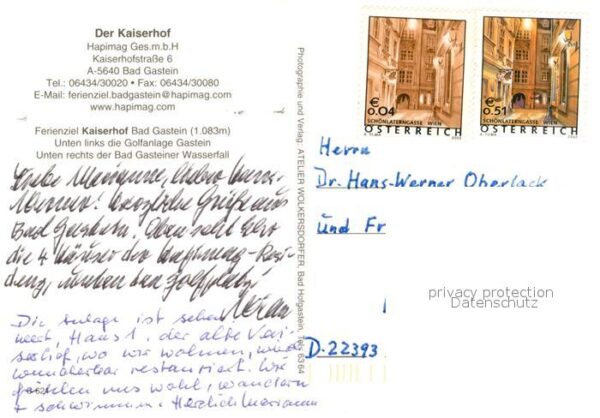 Der Kaiserhof
Hapimag Ges.m.b.H
Kaiserhofstraße 6
A-5640 Bad Gastein
Tel.: 06434/30020 • Fax: 06434/30080
E-Mail: ferienziel.badgastein@hapimag.com
www.hapimag.com
Ferienziel Kaiserhof Bad Gastein (1.083m)
Unten links die Golfanlage Gastein
Unten rechts der Bad Gasteiner Wasserfall
Liebe Marianne, lieber Hans-
Werner! Herzliche Grüße aus
Bad Gastein. Oben seht Ihr
die 4 Häuser der Hapimag-Resi-
denz, unten den Golfplatz,
Die Anlage ist sehens
wert, Haus 1, der alte Kai-
serhof, wo wir wohnen, wurde
wunderbar restauriert. Wir
fühlen uns wohl, wandern
+ schwimmen. Herzlich Marianne
Photographie und Verlag: ATELIER WOLKERSDORFER, Bad Hofgastein, Tel. 6364
€ 0.04
SCHÖNLATERNGASSE WIEN
ÖSTERREICH
€ 0.51
SCHÖNLATERNGASSE WIEN
ÖSTERREICH
Herrn
Dr. Hans-Werner Oberlack
und Fr
privacy protection
Datenschutz
D-22393